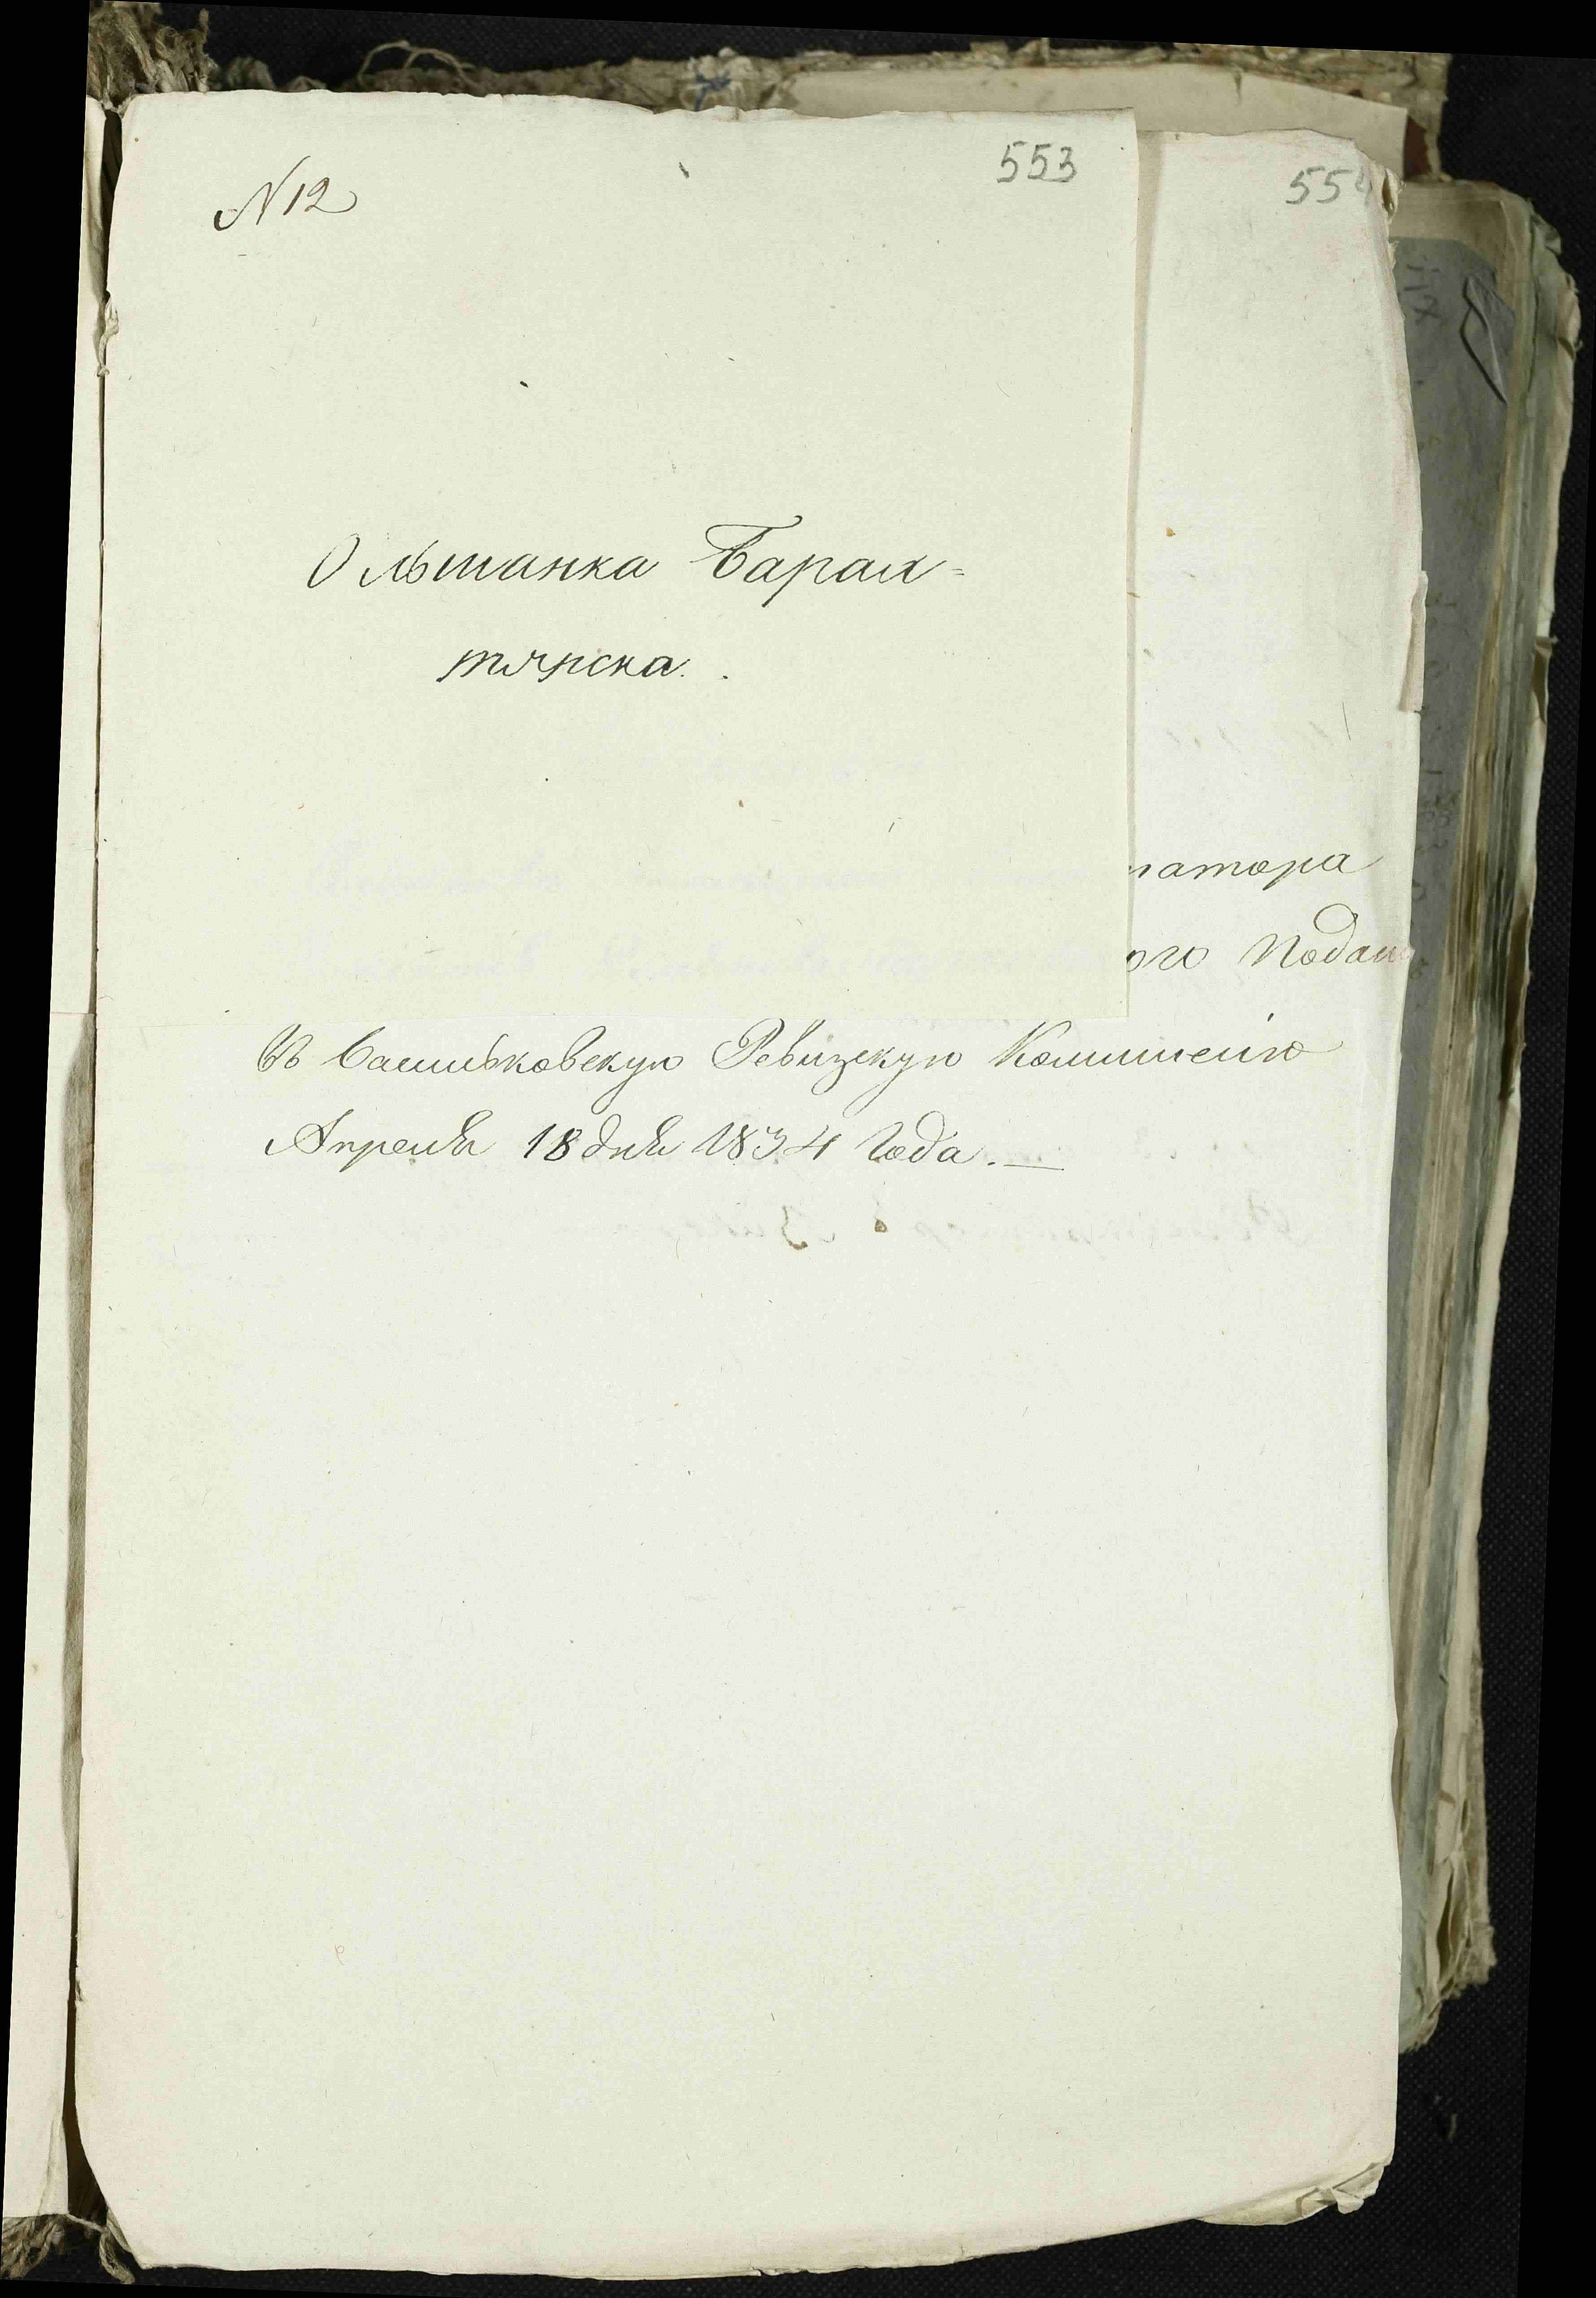 553
554
N 12
Ольшанка Барах=
тянска.
матора
ого Подан
Въ Васильковскую Ревизскую Коммисію
Апреля 18 дня 1834 Года.—